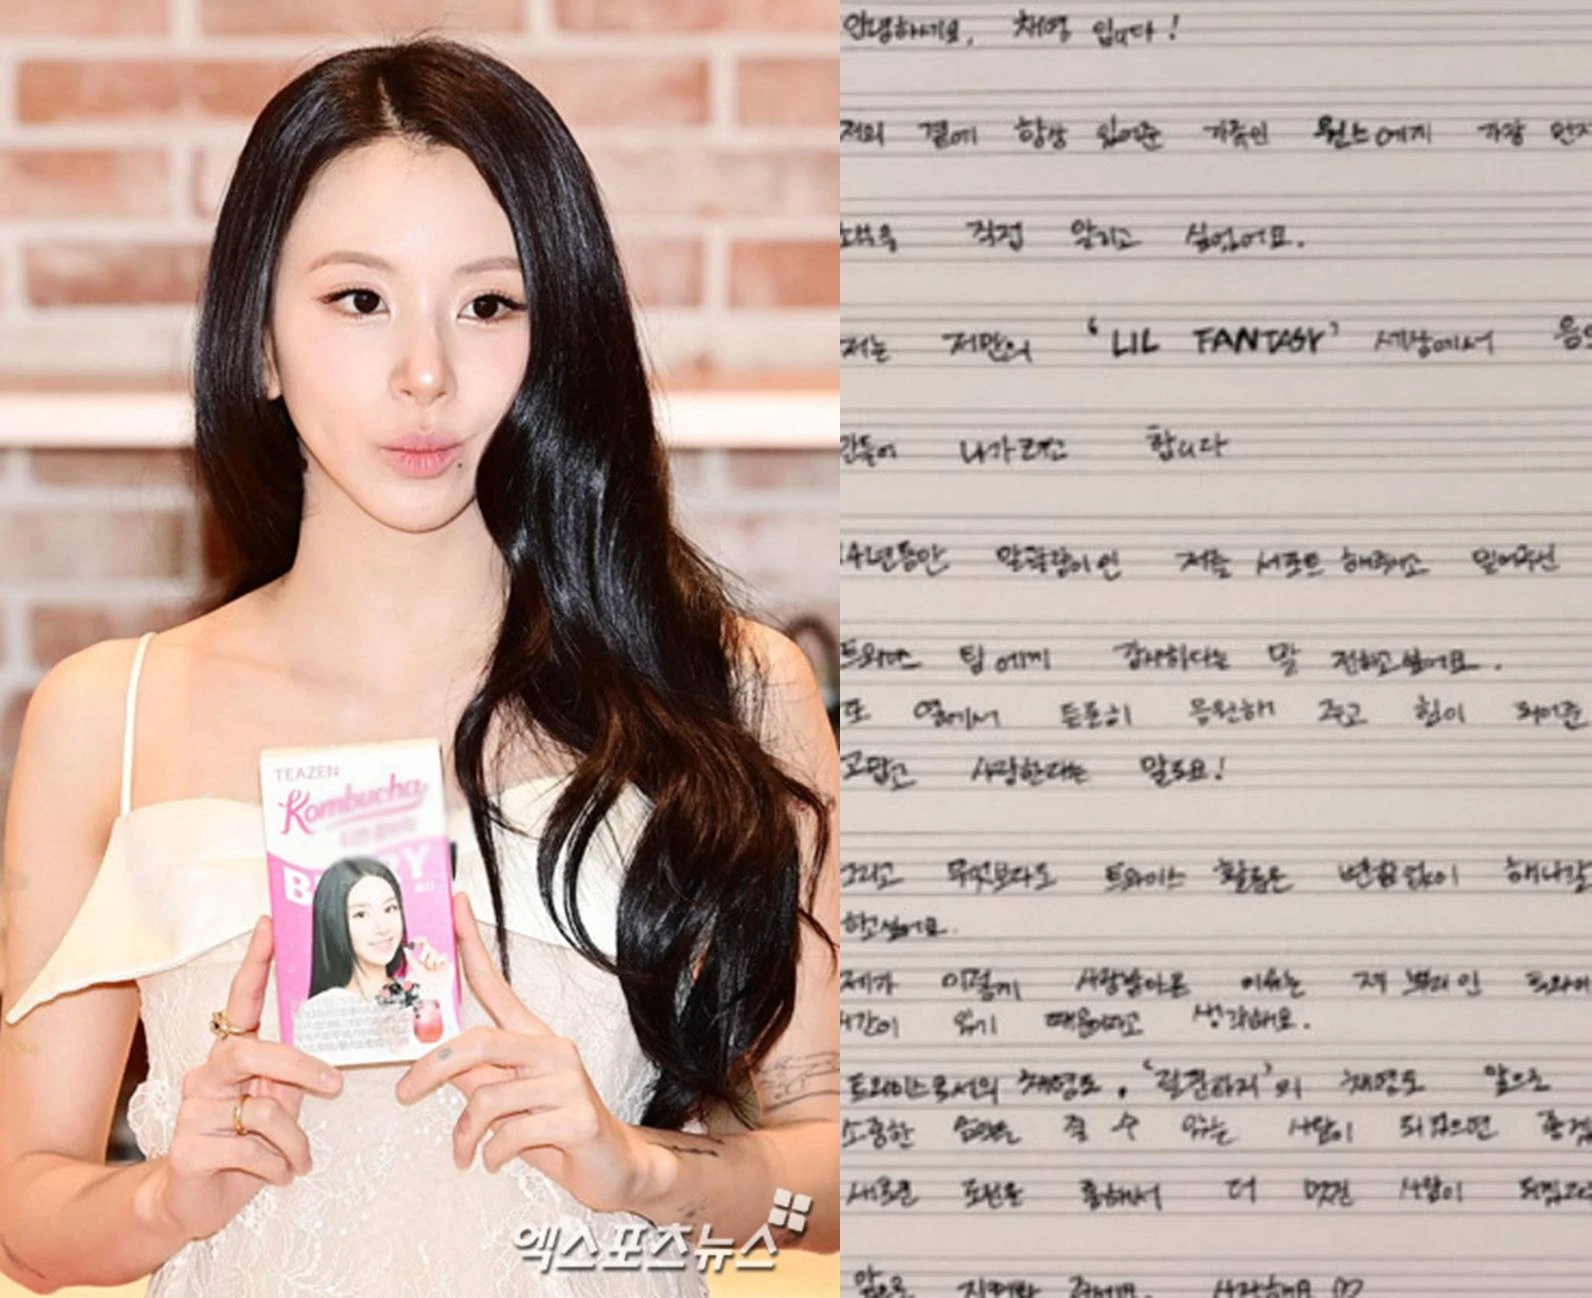 TEAZEN
Kombucha
엑스포츠뉴스
안녕하세요, 채영 입니다!
저의 곁에 항상 있어준 가족인 원스에게 가장 먼저
소식을 직접 알리고 싶었어요.
저는 저만의 'LIL FANTASY' 세상에서 음악
만들어 나가려고 합니다
14년동안 말괄량이인 저를 서포트 해주시고 믿어주신
트와이스 팀에게 감사하다는 말 전하고싶어요.
또 옆에서 든든히 응원해 주고 힘이 되어준
고맙고 사랑한다는 말도요!
그리고 무엇보다도 트와이스 활동은 변함없이 해나갈
하고싶어요.
제가 이렇게 사랑받아온 이유는 제 뿌리인 트와이
시간이 있기 때문이라고 생각해요.
트와이스로서의 채영도, 의 채영도 앞으로
소중한 줄 수 있는 사람이 되었으면 좋겠
새로운 도전을 통해서 더 멋진 사람이 되겠
앞으로 지켜봐 주세요. 사랑해요♡